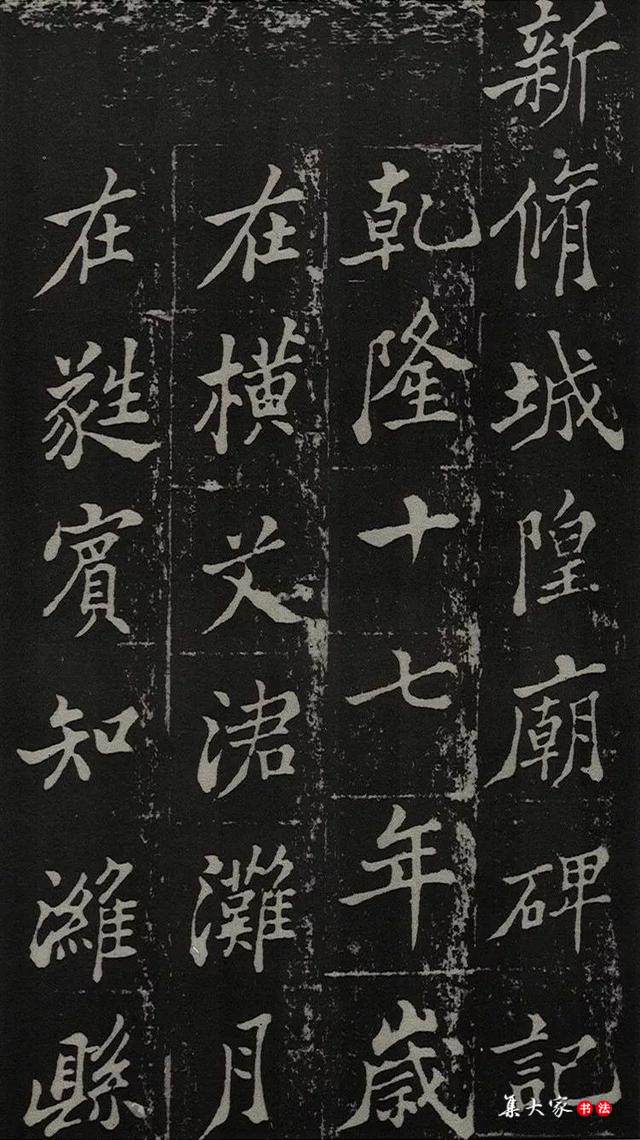 新脩城隍廟碑記
乾隆十七年歲
在橫艾涒灘月
在蕤賓知濰縣
集大家书法